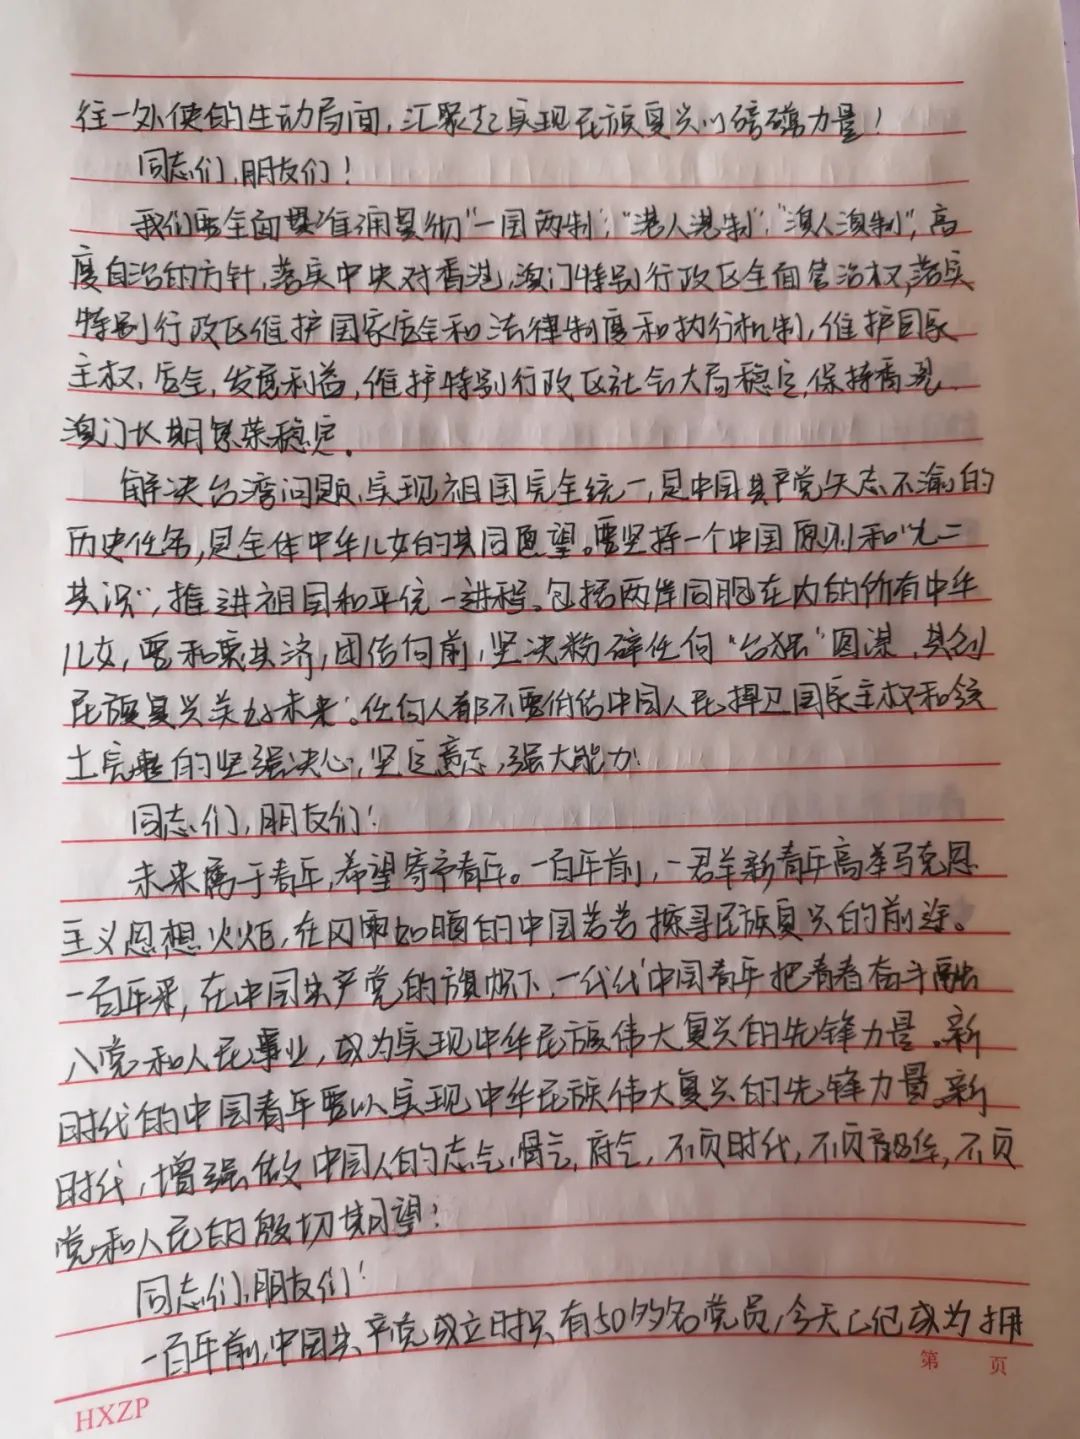 往一处使的生动局面,汇聚起实现民族复兴的磅礴力量!
同志们,朋友们!
我们要全面准确贯彻"一国两制","港人港制","澳人澳制",高
度自治的方针,落实中央对香港,澳门特别行政区全面管治权,落实
特别行政区维护国家安全和法律制度和执行机制,维护国家
主权、安全,发展利益,维护特别行政区社会大局稳定,保持香港、
澳门长期繁荣稳定.
解决台湾问题,实现祖国完全统一,是中国共产党矢志不渝的
历史任务,是全体中华儿女的共同愿望。要坚持一个中国原则和"九二
共识",推进祖国和平统一进程。包括两岸同胞在内的所有中华
儿女,要和衷共济,团结向前,坚决粉碎任何"台独"图谋,共创
民族复兴美好未来。任何人都不要低估中国人民捍卫国家主权和领
土完整的坚强决心,坚定意志,强大能力!
同志们,朋友们!
未来属于青年,希望寄予青年。一百年前,一群新青年高举马克思
主义思想火炬,在风雨如晦的中国苦苦探寻民族复兴的前途。
一百年来,在中国共产党的旗帜下,一代代中国青年把青春奋斗融
入党和人民事业,成为实现中华民族伟大复兴的先锋力量.新
时代的中国青年要以实现中华民族伟大复兴的先锋力量.新
时代,增强做中国人的志气,骨气,底气,不负时代,不负韶华,不负
党和人民的殷切期望!
同志们,朋友们!
一百年前,中国共产党成立时只有50多名党员,今天已经成为拥
第 页
HXZP